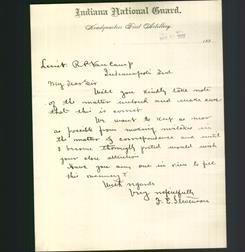 Indiana National Guard.
Headquarters First Artillery.
189
Lieut R. P. Van Camp
Indianapolis Ind.
My dear Sir
Will you kindly take note
of the matter inclosed and make sure
that this is correct
We want to keep as near
as possible from making mistakes in
the matter of correspondence and until
I become thoroughly posted would wish
your close attention
Have you any one in view to fill
this vacancy?
With regards
Very respectfully